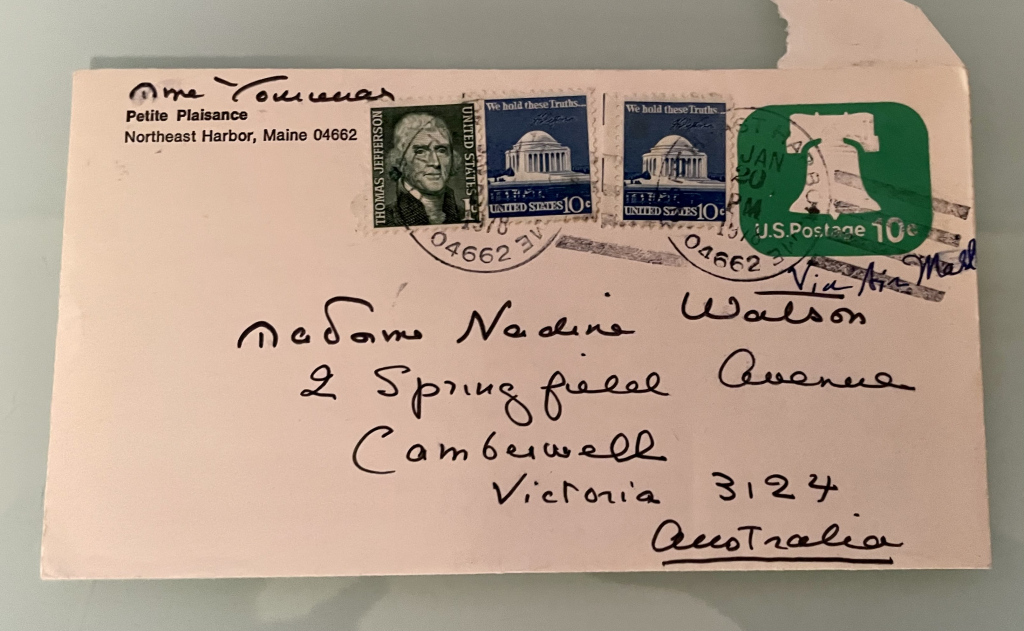 Mme Yourcenar
Petite Plaisance
Northeast Harbor, Maine 04662
THOMAS JEFFERSON
UNITED STATES
1c
We hold these Truths...
UNITED STATES 10c
We hold these Truths...
UNITED STATES 10c
1978
04662 ME
JAN
20
PM
04662 ME
U.S. Postage 10c
Via Air Mail
Madame Nadine Watson
2 Springfield Avenue
Camberwell
Victoria 3124
Australia